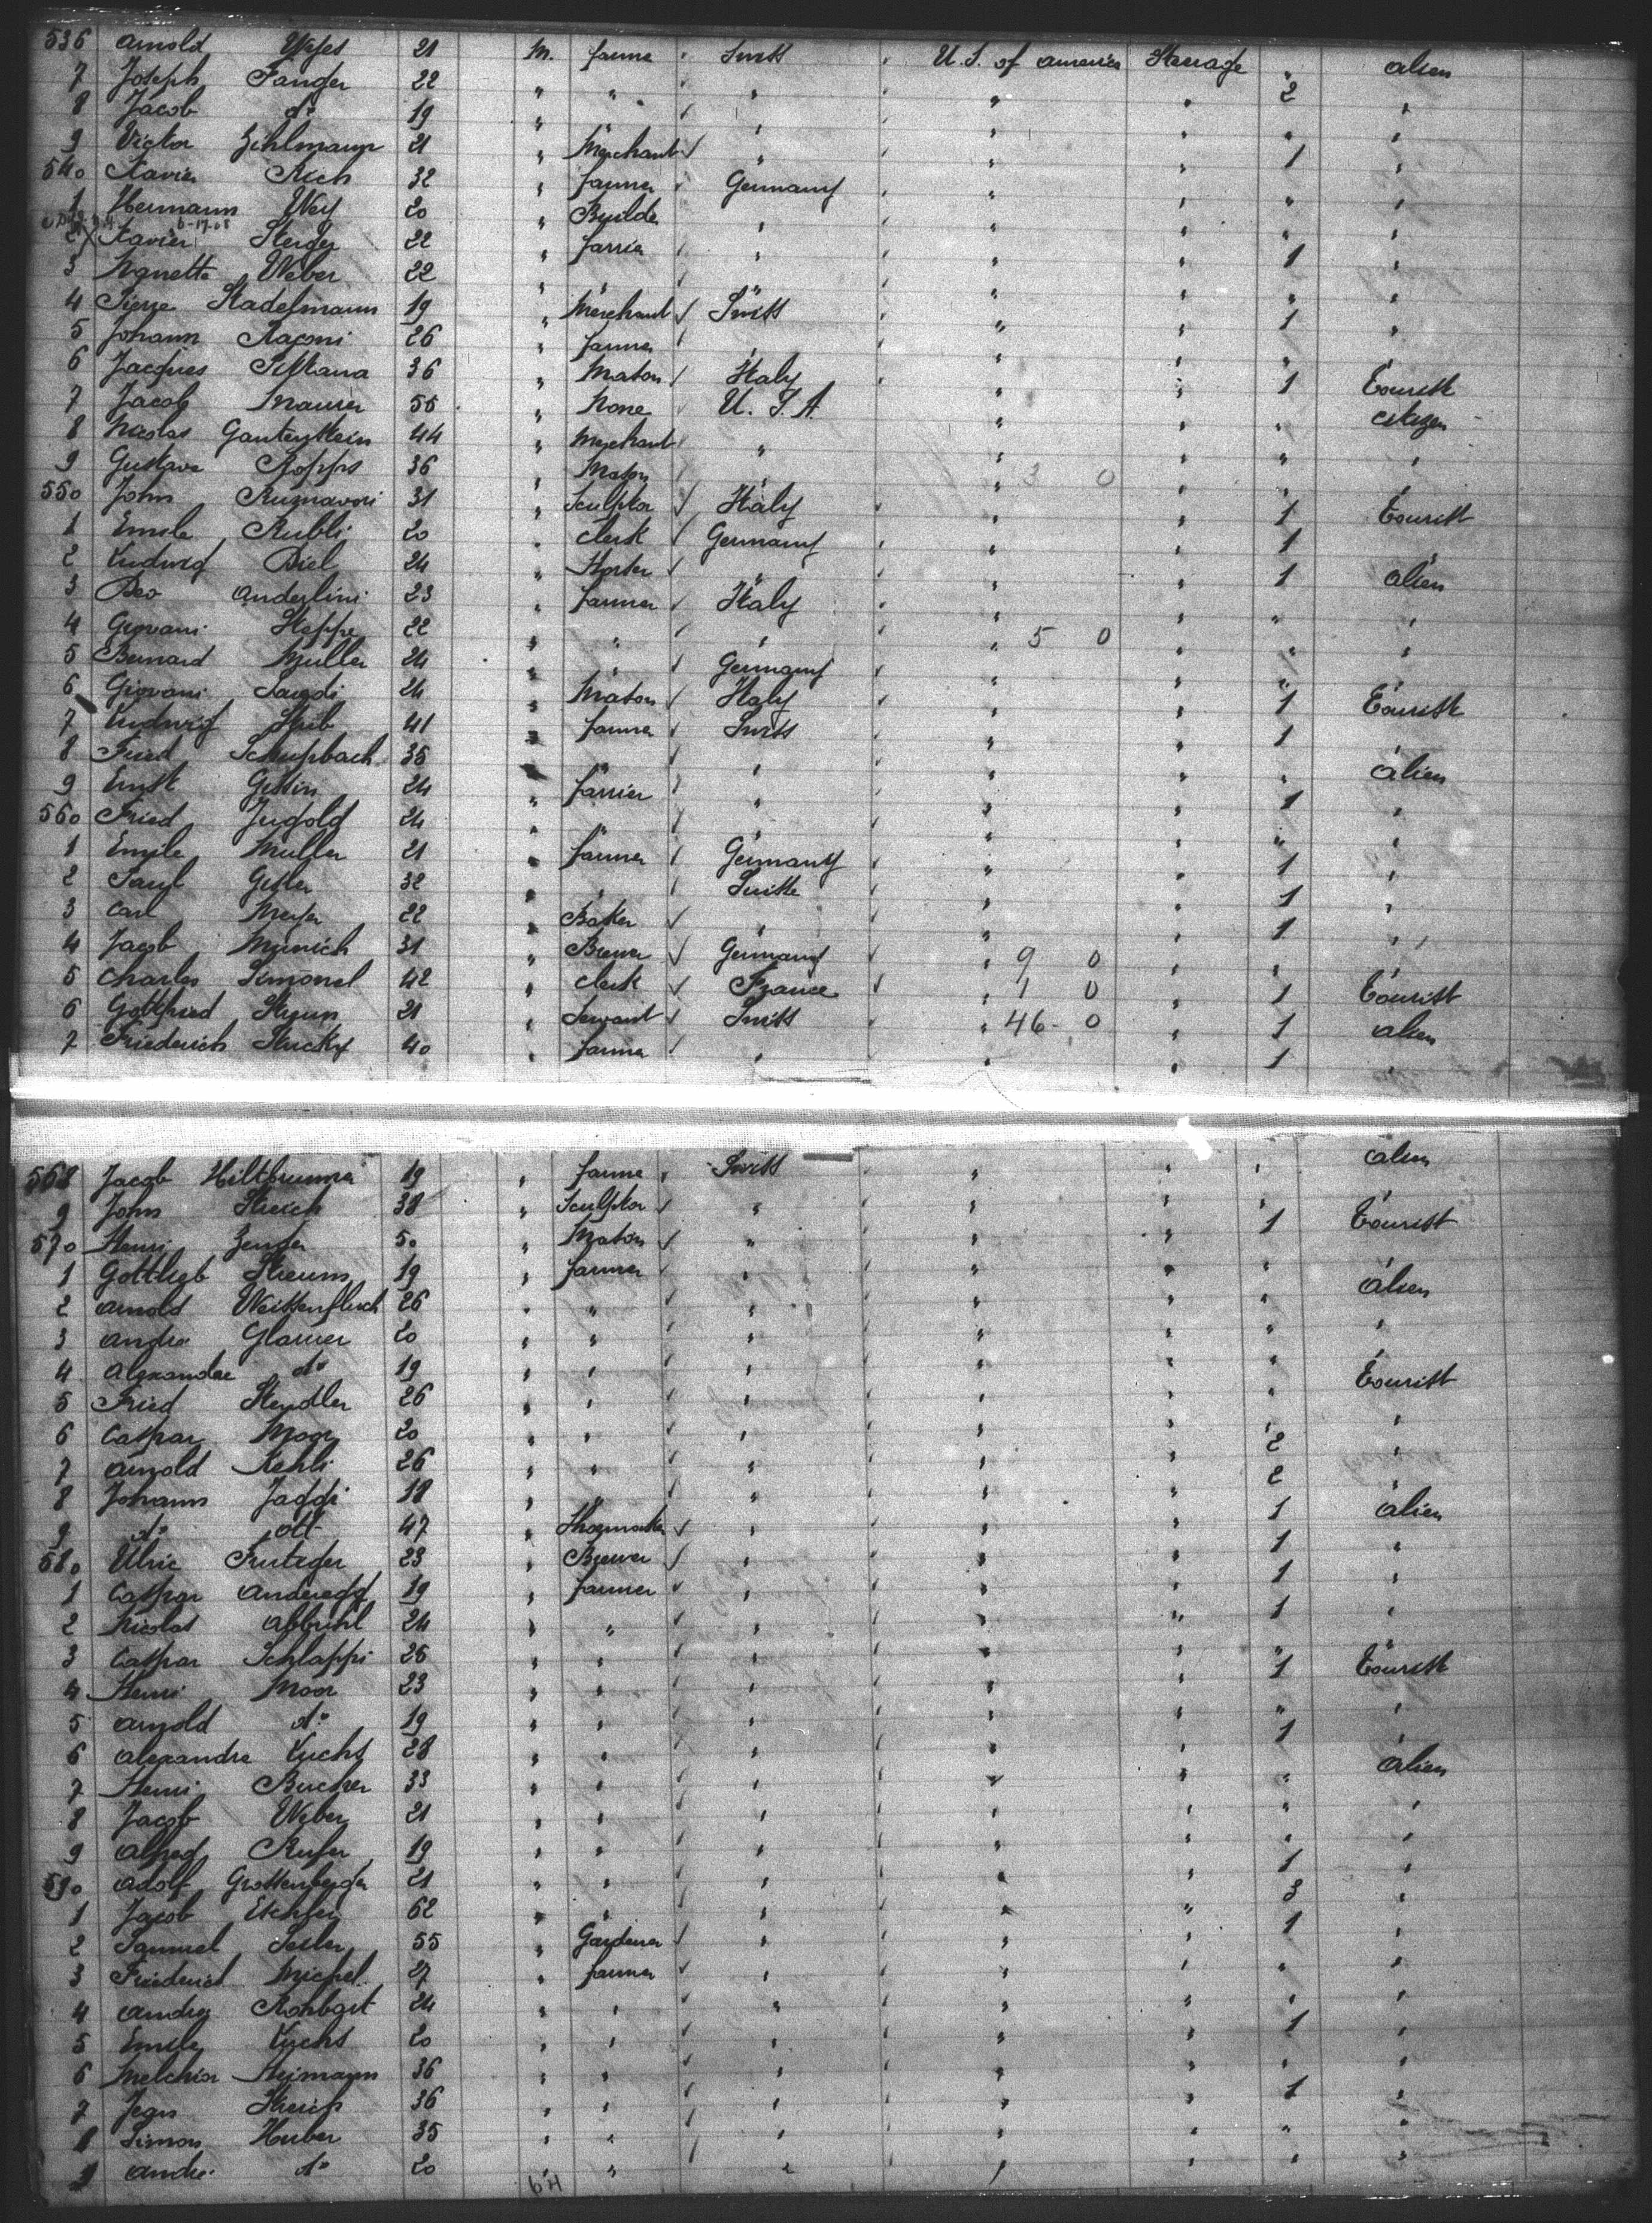 536 Arnold Wyss 21 M. farmer " Swiss " U.S. of america Steerage " alien
7 Joseph Fanger 22 " " " " " 2 "
8 Jacob do 19 " " " " " " "
9 Victor Zihlmann 21 " Merchant " " " 1 "
540 Xavier Rich 32 " farmer Germany " " " "
1 Hermann Wey 20 " Builde " " " " "
6-17-08
2 X Xavier Steiger 22 " farrier " " " 1 "
3 Nanette Weber 22 " " " " " " "
4 Pierre Stadelmann 19 " Merchant Swiss " " 1 "
5 Johann 26 " farmer " " " " "
6 Jacques 36 " Mason Italy " " 1 tourist
7 Jacob Maurer 55 " None U.S.A. " " " citizen
8 Nicolas Gantenbein 44 " Merchant " " " " "
9 Gustave Ropps 36 " Mason " 3 0 " " "
550 John 31 " Sculptor Italy " " 1 tourist
1 Emile Rubli 20 " clerk Germany " " 1 "
2 Ludwig Biel 24 " " " " 1 alien
3 Beo Anderlini 23 " farmer Italy " " " "
4 Giovani Steppe 22 " " " " 5 0 " " "
5 Bernard Muller 24 " " Germany " " " "
6 Giovani 24 " Mason Italy " " 1 tourist
7 Ludwig Stub 41 " farmer Swiss " " 1 "
8 Fried Schupbach 35 " " " " " " alien
9 Ernst Gissin 24 " farrier " " " 1 "
560 Fried Jngold 24 " " " " " " "
1 Emile Muller 21 " farmer Germany " " 1 "
2 Paul Gisler 32 " " Suisse " " 1 "
3 Carl Meyer 22 " Baker " " " 1 "
4 Jacob Munich 31 " Brewer Germany " 9 0 " " "
5 Charles Simonel 42 " clerk France " 1 0 " 1 tourist
6 Gottfried 21 " Servant Swiss " 46 - 0 " 1 alien
7 Friederich Stucky 40 " farmer " " " 1 "
568 Jacob Hiltbrunner 19 " farme " Swiss " " " alien
9 John Streich 38 " Sculptor " " " " "
570 Henri Zenger 50 " Mason " " " 1 tourist
1 Gottlieb 19 " farmer " " " " "
2 Arnold Weissenfluch 26 " " " " " " alien
3 Andre Glauser 20 " " " " " " "
4 Alexandre do 19 " " " " " " "
5 Fried Hendler 26 " " " " " " tourist
6 Caspar Moor 20 " " " " " 2 "
7 Arnold Kehrli 26 " " " " " 2 "
8 Johann Jaggi 18 " " " " " 1 alien
9 do Ott 47 " Shoemaker " " " 1 "
580 Ulric Frutiger 23 " Brewer " " " 1 "
1 Caspar Anderegg 19 " farmer " " " 1 "
2 Nicolas Abbuhl 24 " " " " " " "
3 Caspar Schlappi 26 " " " " " 1 tourist
4 Henri Moor 23 " " " " " " "
5 Arnold do 19 " " " " " 1 "
6 Alexandre Fuchs 28 " " " " " " alien
7 Henri Bucher 33 " " " " " " "
8 Jacob Weber 21 " " " " " " "
9 Alfred Rufer 19 " " " " " 1 "
590 Adolf 21 " " " " " 3 "
1 Jacob 62 " " " " " 1 "
2 Samuel Seiler 55 " Gardener " " " " "
3 Friederich Michel 27 " farmer " " " " "
4 Andre 24 " " " " " 1 "
5 Emile Fuchs 20 " " " " " " "
6 Melchior Heimann 36 " " " " " 1 "
7 Streich 36 " " " " " " "
8 Simon Huber 35 " " " " " " "
9 Andre do 20 " " " " " "
64